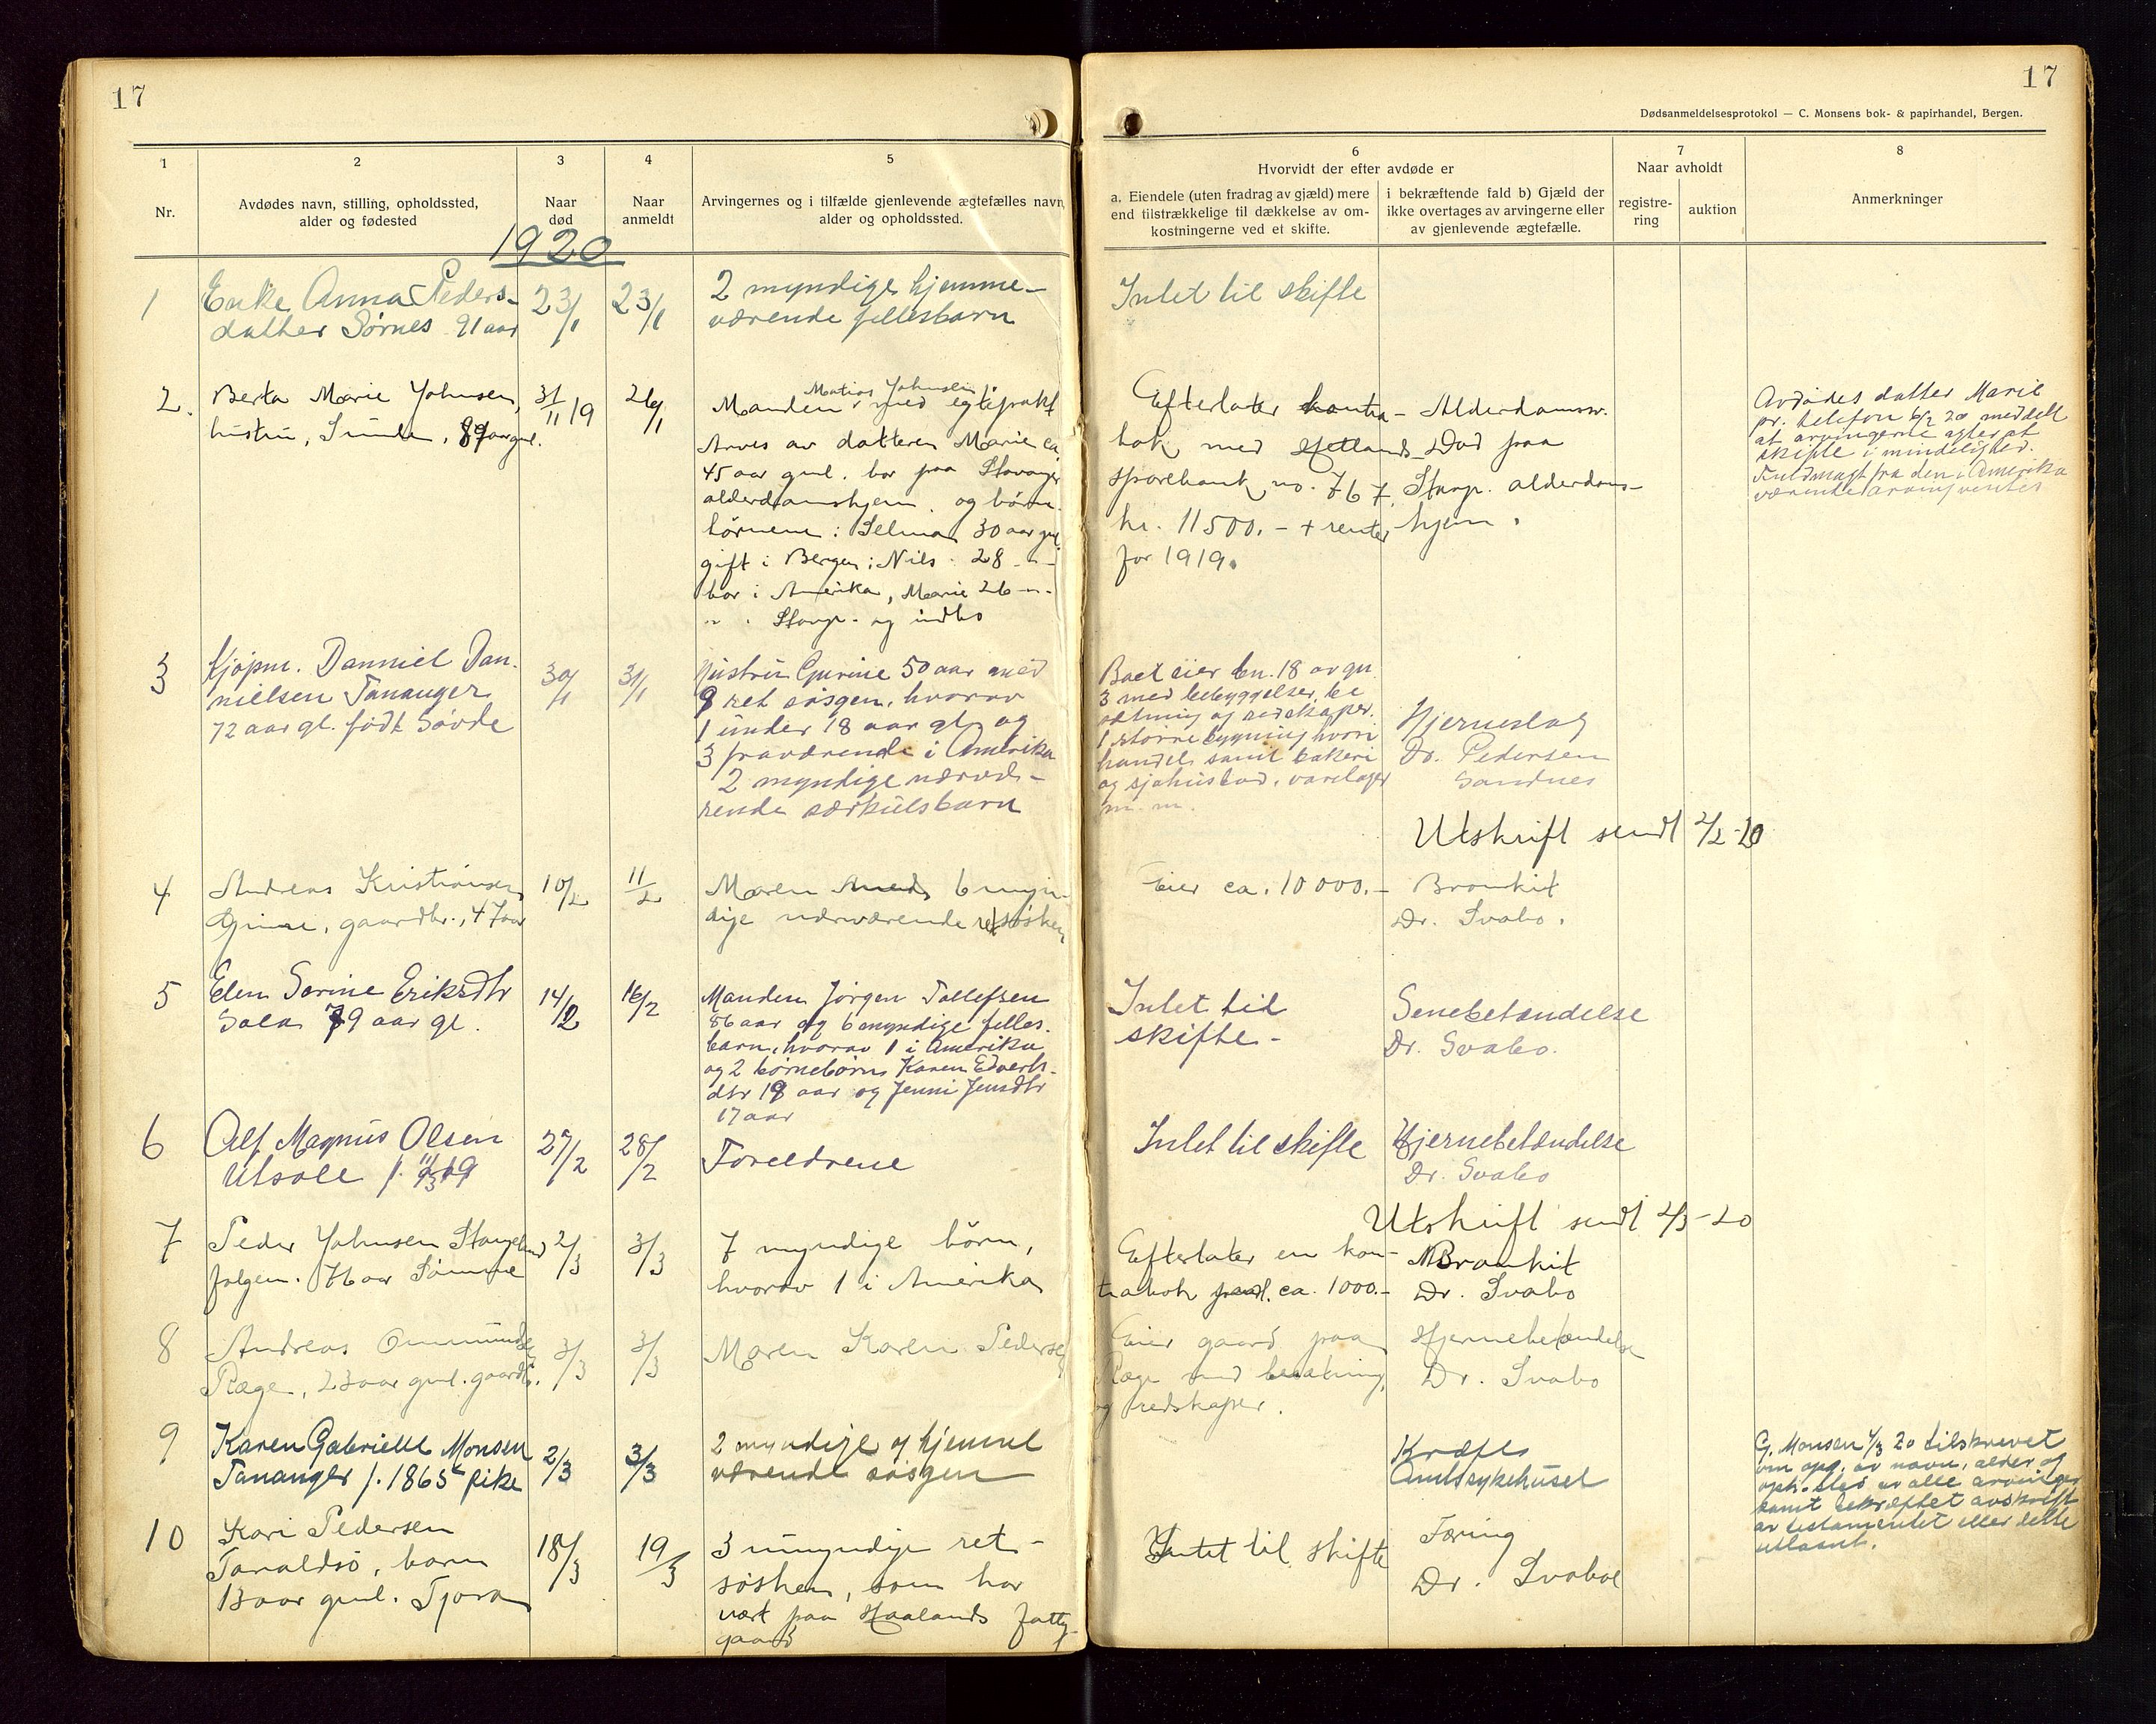 17
17
Dødsanmeldelsesprotokol — C. Monsens bok- & papirhandel, Bergen.
1
Nr.
2
Avdødes navn, stilling, opholdssted,
alder og fødested
3
Naar
død
4
Naar
anmeldt
5
Arvingernes og i tilfælde gjenlevende ægtefælles navn
alder og opholdssted.
6
Hvorvidt der efter avdøde er
a. Eiendele (uten fradrag av gjæld) mere
end tilstrækkelige til dækkelse av om-
kostningerne ved et skifte.
i bekræftende fald b) Gjæld der
ikke overtages av arvingerne eller
av gjenlevende ægtefælle.
7
Naar avholdt
registre-
ring
auktion
8
Anmerkninger
1920
1
Enke Anna Peders-
datter Sørnes 91 aar
23/1
23/1
2 myndige hjemme-
værende fellesbarn
Intet til skifte
2.
Berta Marie Johnsen,
hustru, Sunde, 89 aar gml.
31/11 19
26/1
Matias Johnsen
Manden med egtepakt
Arves av datteren Marie ca
45 aar gml. bor paa Stavanger
alderdomshjem. og børne-
børnene: Selma 30 aar gml.
gift i Bergen; Nils 28 -"-
bor i Amerika, Marie 26 -"-
" " Stavgr. og indbo
Efterlater kontra-
bok med Hetlands
sparebank no. 767
kr. 11500.- + renter
for 1919.
Alderdomssv.
Død paa
Stavgr. alderdoms-
hjem.
Avdødes datter Marie
pr. telefon 6/2 20 meddelt
at arvingerne agter at
skifte i mindelighed.
Fuldmagt fra den i Amerika
værende arving ventes
3
Kjøpm. Danniel Dan-
nielsen Tananger
72 aar gl. født Søvde
30/1
31/1
Hustru Gurine 50 aar med
9 ret søsgen, hvorav
1 under 18 aar gl. og
3 fraværende i Amerika
2 myndige nærvæ-
rende særkulsbarn
Boet eier bn. 18 av gn.
3 med bebyggelser, be
sætning og redskaper.
1 større bygning hvori
handel samt bakeri
og sjøhusbod, varelager
m. m.
Hjerneslag
Dr. Pedersen
Sandnes
Utskrift sendt 2/2-20
4
Andreas Kristiansen
Grime, gaardbr., 47 aar
10/2
11/2
Moren 6 myn-
dige nærværende retsøsken
Eier ca. 10 000.-
Bronkit
Dr. Svabo.
5
Elen Serine Eriksdtr
Sola 79 aar gl.
14/2
16/2
Manden Jørgen Tollefsen
86 aar og 6 myndige felles-
barn, hvorav 1 i Amerika
og 2 børnebørn Karen Edverts-
dtr 19 aar og Jenni Jensdtr
17 aar
Intet til
skifte-
Senebetændelse
Dr. Svabo.
6
Alf Magnus Olsen
Utsole f. 11/3 19
27/2
28/2
Foreldrene
Intet til skifte
Hjernebetændelse
Dr. Svabo
Utskrift sendt 2/3-20
7
Peder Johnsen Stangeland
følgem. 76 aar Sømme
2/3
3/3
7 myndige børn,
hvorav 1 i Amerika
Efterlater en kon-
trabok ca. 1000.-
Bronkit
Dr. Svabo
8
Andreas Ommundsen
Ræge, 23 aar gml. gaardbr.
3/3
3/3
Moren Karen Pedersen
Eier gaard paa
Ræge med besætning,
og redskaper.
Hjernebetændelse
Dr. Svabo
9
Karen Gabrielle Monsen
Tananger f. 1865 pike
2/3
3/3
2 myndige og hjemme
værende søsgen
Kræft
Amtssykehuset
G. Monsen 4/3 20 tilskrevet
om opg. av navn, alder og
oph. sted av alle arvinger
samt bekræftet avskrift
av testamentet eller dette
utlaant.
10
Kari Pedersen
Taraldsø, barn
13 aar gml. Tjora
18/3
19/3
3 umyndige ret-
søsken, som har
vært paa Haalands fattig-
gaard
Intet til skifte
Tæring
Dr. Svaboe